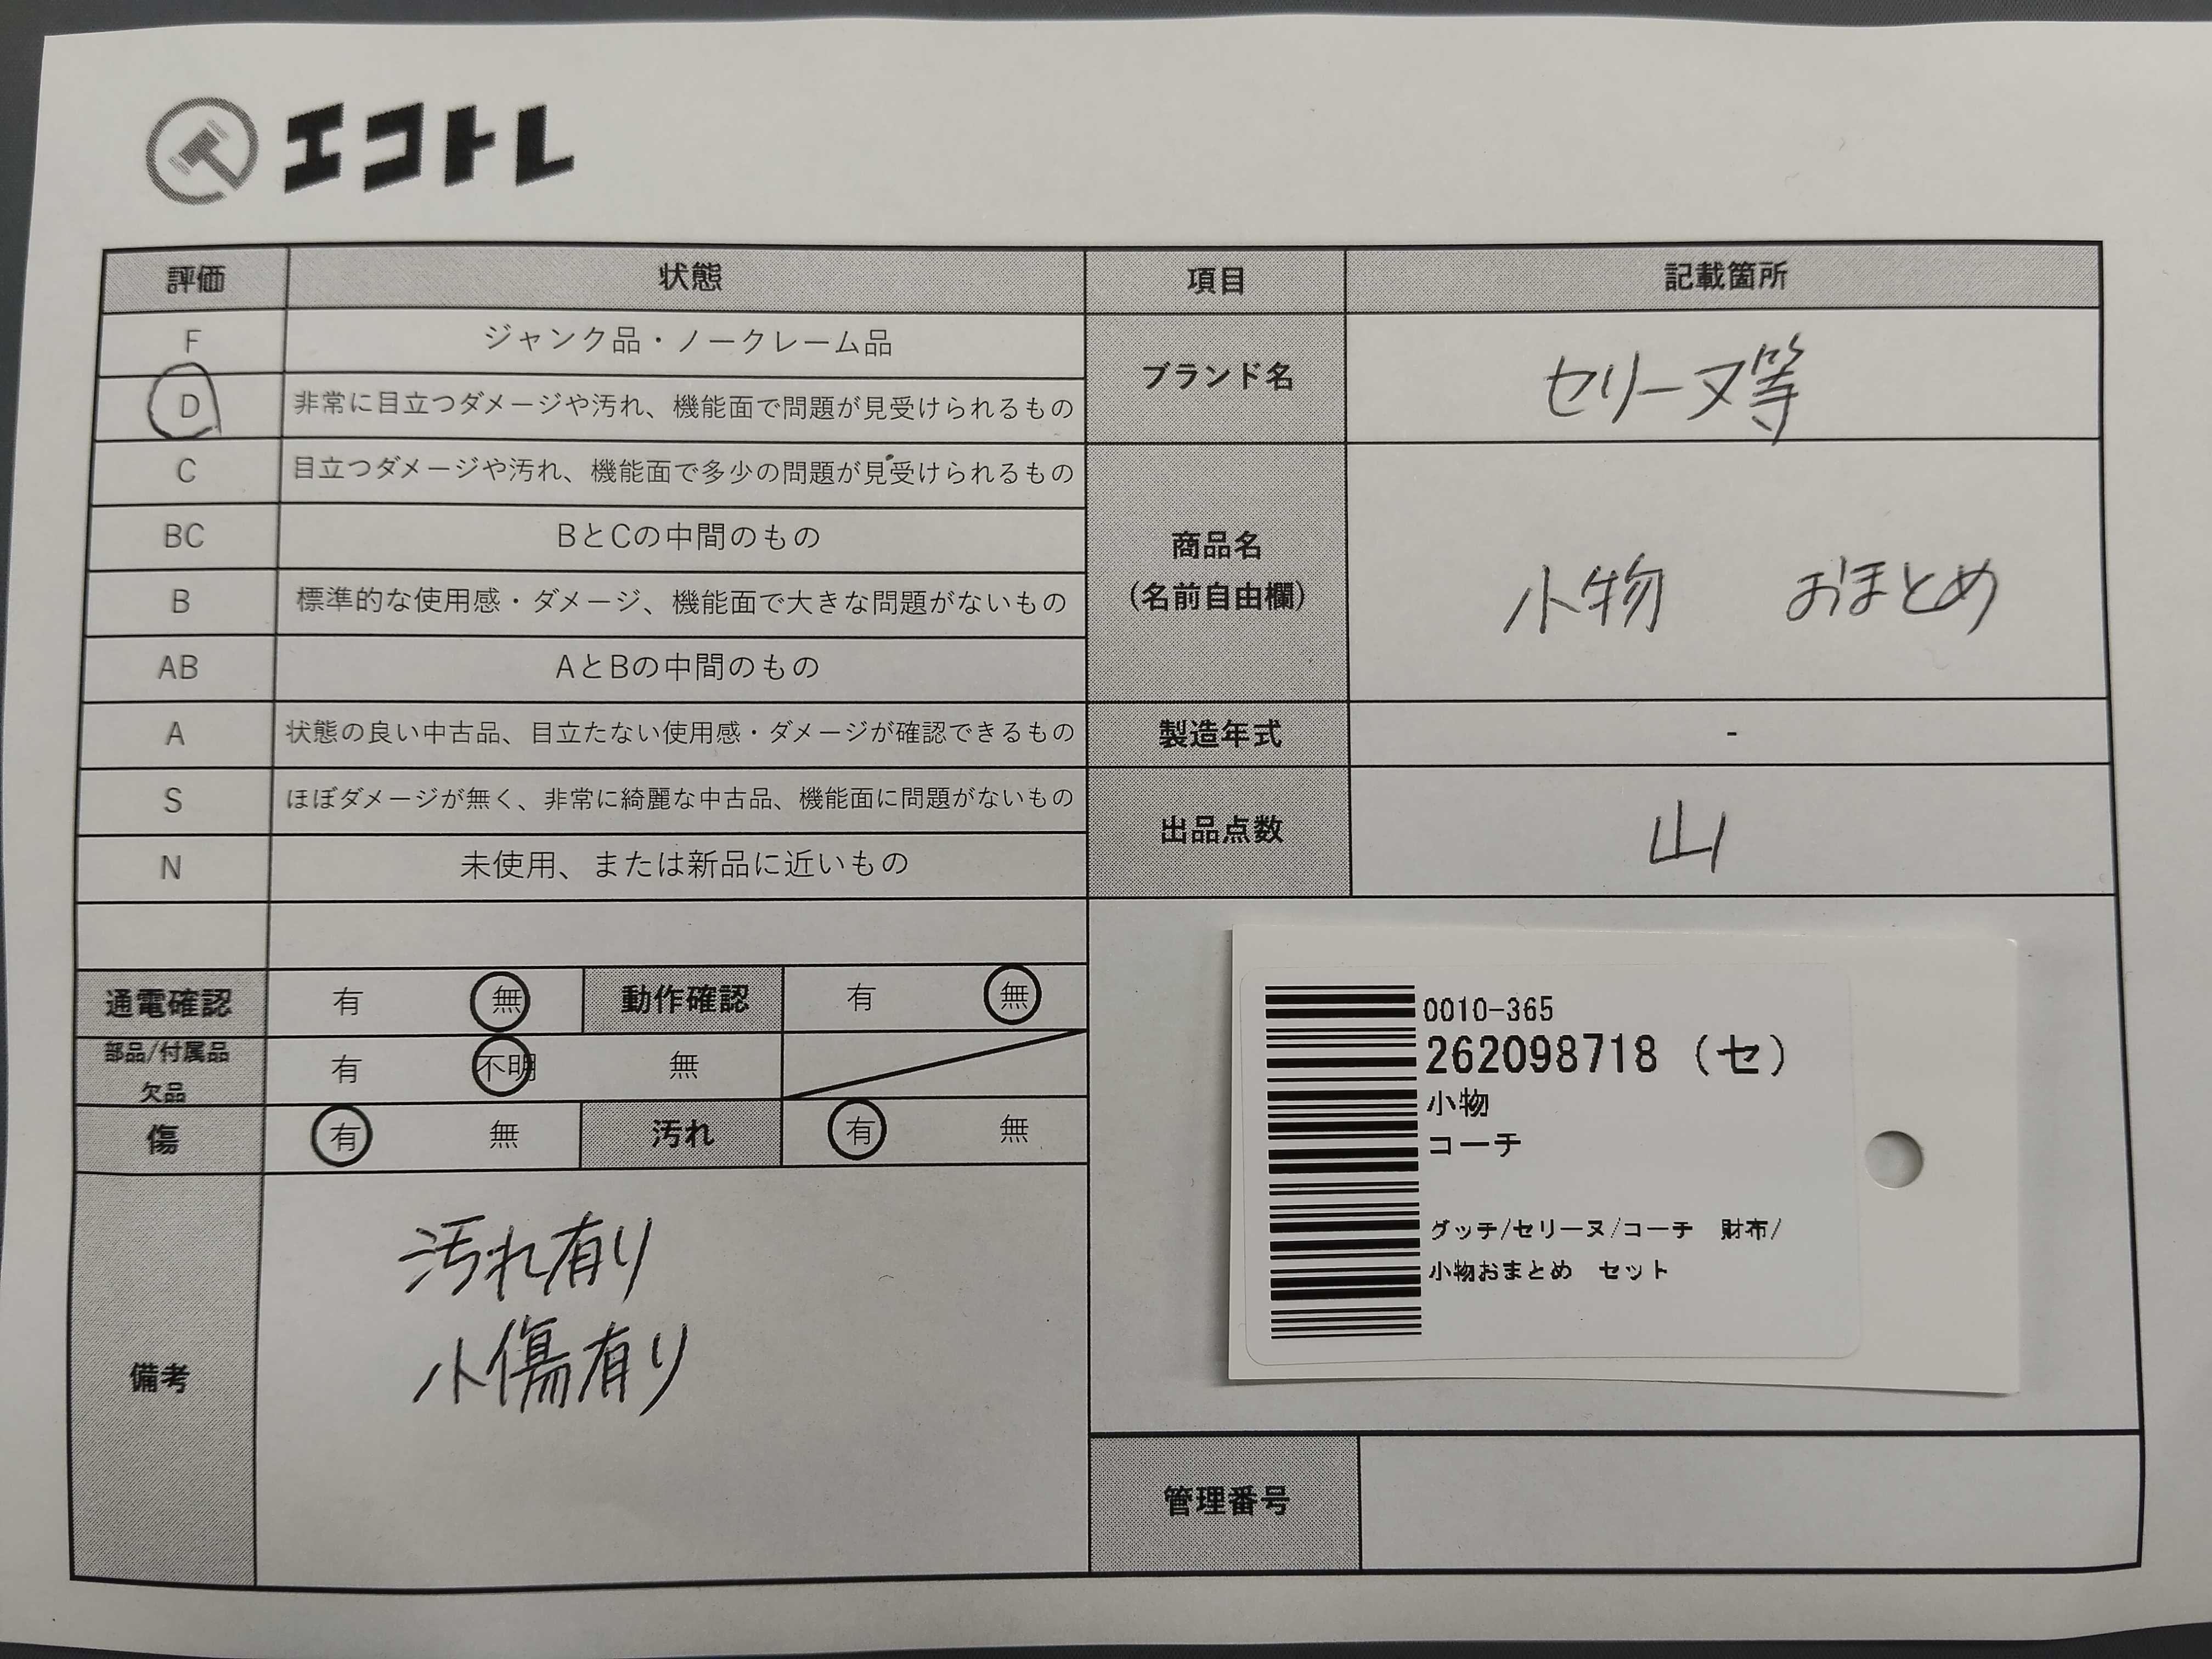 エコトレ
評価 状態 項目 記載箇所
F ジャンク品・ノークレーム品
D 非常に目立つダメージや汚れ、機能面で問題が見受けられるもの
ブランド名 セリーヌ等
C 目立つダメージや汚れ、機能面で多少の問題が見受けられるもの
BC BとCの中間のもの
商品名
(名前自由欄)
小物 おまとめ
B 標準的な使用感・ダメージ、機能面で大きな問題がないもの
AB AとBの中間のもの
A 状態の良い中古品、目立たない使用感・ダメージが確認できるもの
製造年式 -
S ほぼダメージが無く、非常に綺麗な中古品、機能面に問題がないもの
出品点数 山
N 未使用、または新品に近いもの
通電確認 有 無 動作確認 有 無
部品/付属品
欠品
有 不明 無
傷 有 無 汚れ 有 無
備考
汚れ有り
小傷有り
0010-365
262098718 (セ)
小物
コーチ
グッチ/セリーヌ/コーチ 財布/
小物おまとめ セット
管理番号